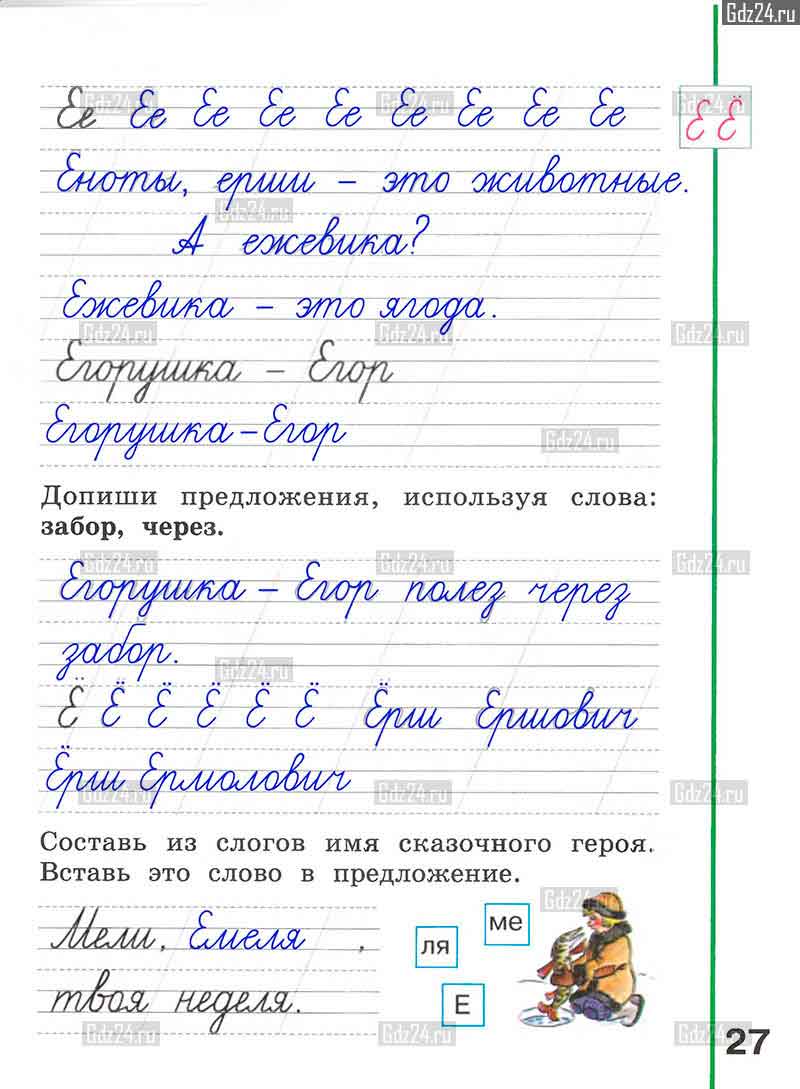 Gdz24.ru
Ее Ее Ее Ее Ее Ее Ее Ее Ее
Е Ё
Еноты, ерши – это животные.
А ежевика?
Ежевика – это ягода.
Егорушка – Егор
Егорушка – Егор
Допиши предложения, используя слова:
забор, через.
Егорушка – Егор полез через
забор.
Ё Ё Ё Ё Ё Ё Ёрш Ершович
Ёрш Ермолович
Составь из слогов имя сказочного героя.
Вставь это слово в предложение.
Мели, Емеля ,
твоя неделя.
ме
ля
Е
27